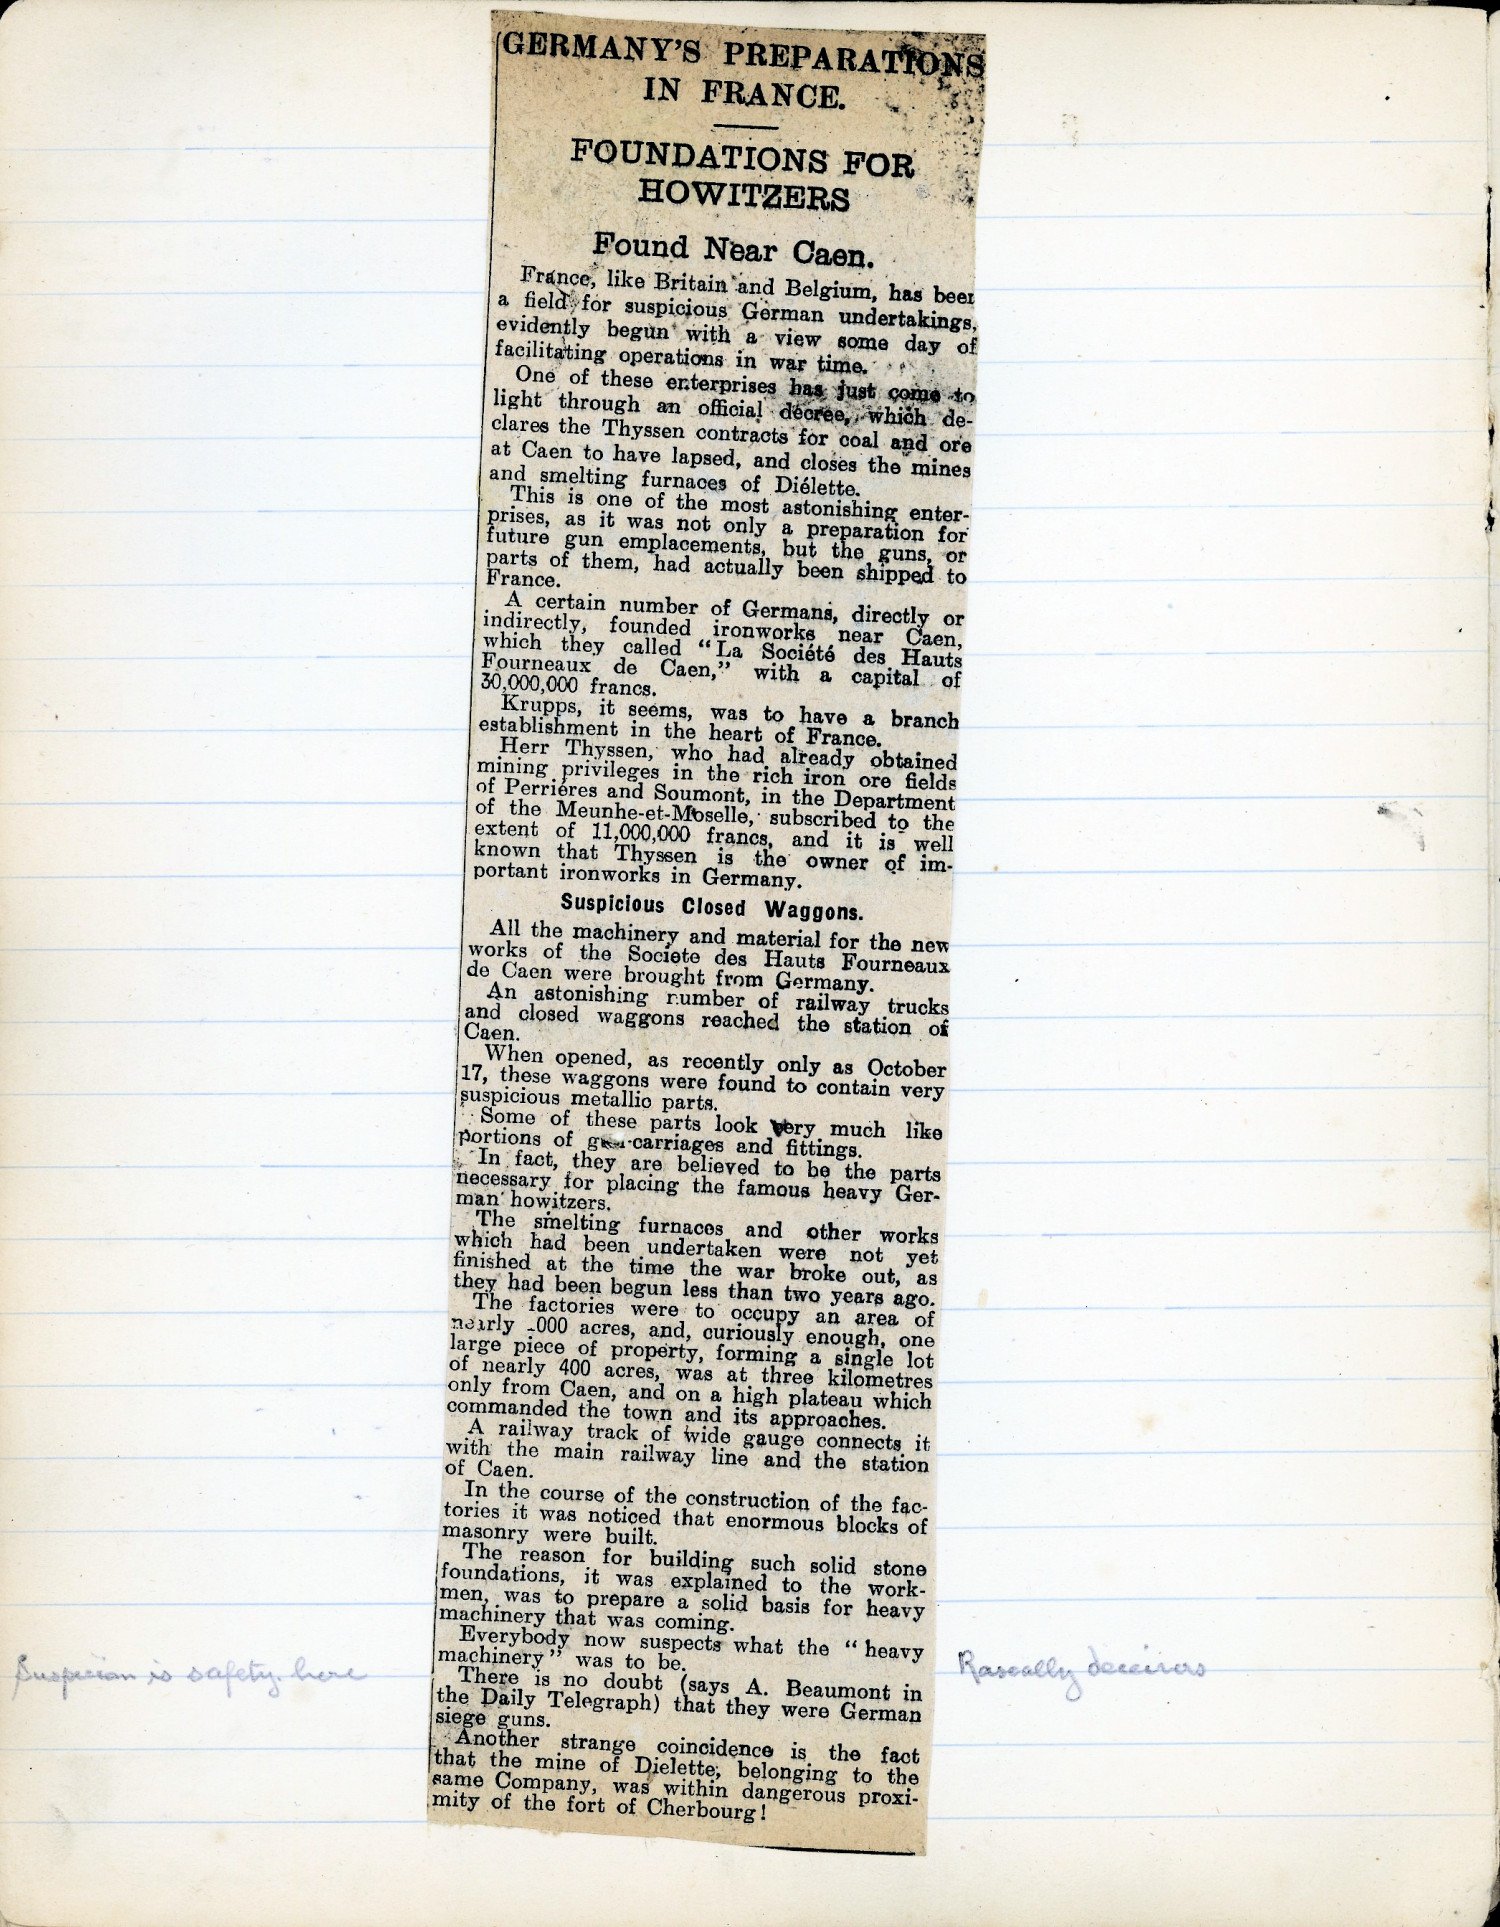 GERMANY'S PREPARATIONS
IN FRANCE.
FOUNDATIONS FOR
HOWITZERS
Found Near Caen.
France, like Britain and Belgium, has been
a field for suspicious German undertakings,
evidently begun with a view some day of
facilitating operations in war time.
One of these enterprises has just come to
light through an official decree, which de-
clares the Thyssen contracts for coal and ore
at Caen to have lapsed, and closes the mines
and smelting furnaces of Diélette.
This is one of the most astonishing enter-
prises, as it was not only a preparation for
future gun emplacements, but the guns, or
parts of them, had actually been shipped to
France.
A certain number of Germans, directly or
indirectly, founded ironworks near Caen,
which they called "La Société des Hauts
Fourneaux de Caen," with a capital of
30,000,000 francs.
Krupps, it seems, was to have a branch
establishment in the heart of France.
Herr Thyssen, who had already obtained
mining privileges in the rich iron ore fields
of Perriéres and Soumont, in the Department
of the Meunhe-et-Moselle, subscribed to the
extent of 11,000,000 francs, and it is well
known that Thyssen is the owner of im-
portant ironworks in Germany.
Suspicious Closed Waggons.
All the machinery and material for the new
works of the Societe des Hauts Fourneaux
de Caen were brought from Germany.
An astonishing number of railway trucks
and closed waggons reached the station of
Caen.
When opened, as recently only as October
17, these waggons were found to contain very
suspicious metallic parts.
Some of these parts look very much like
portions of carriages and fittings.
In fact, they are believed to be the parts
necessary for placing the famous heavy Ger-
man howitzers.
The smelting furnaces and other works
which had been undertaken were not yet
finished at the time the war broke out, as
they had been begun less than two years ago.
The factories were to occupy an area of
nearly 000 acres, and, curiously enough, one
large piece of property, forming a single lot
of nearly 400 acres, was at three kilometres
only from Caen, and on a high plateau which
commanded the town and its approaches.
A railway track of wide gauge connects it
with the main railway line and the station
of Caen.
In the course of the construction of the fac-
tories it was noticed that enormous blocks of
masonry were built.
The reason for building such solid stone
foundations, it was explained to the work-
men, was to prepare a solid basis for heavy
machinery that was coming.
Everybody now suspects what the "heavy
machinery" was to be.
There is no doubt (says A. Beaumont in
the Daily Telegraph) that they were German
siege guns.
Another strange coincidence is the fact
that the mine of Dielette, belonging to the
same Company, was within dangerous proxi-
mity of the fort of Cherbourg!
Suspicion is safety here
Rascally deceivers